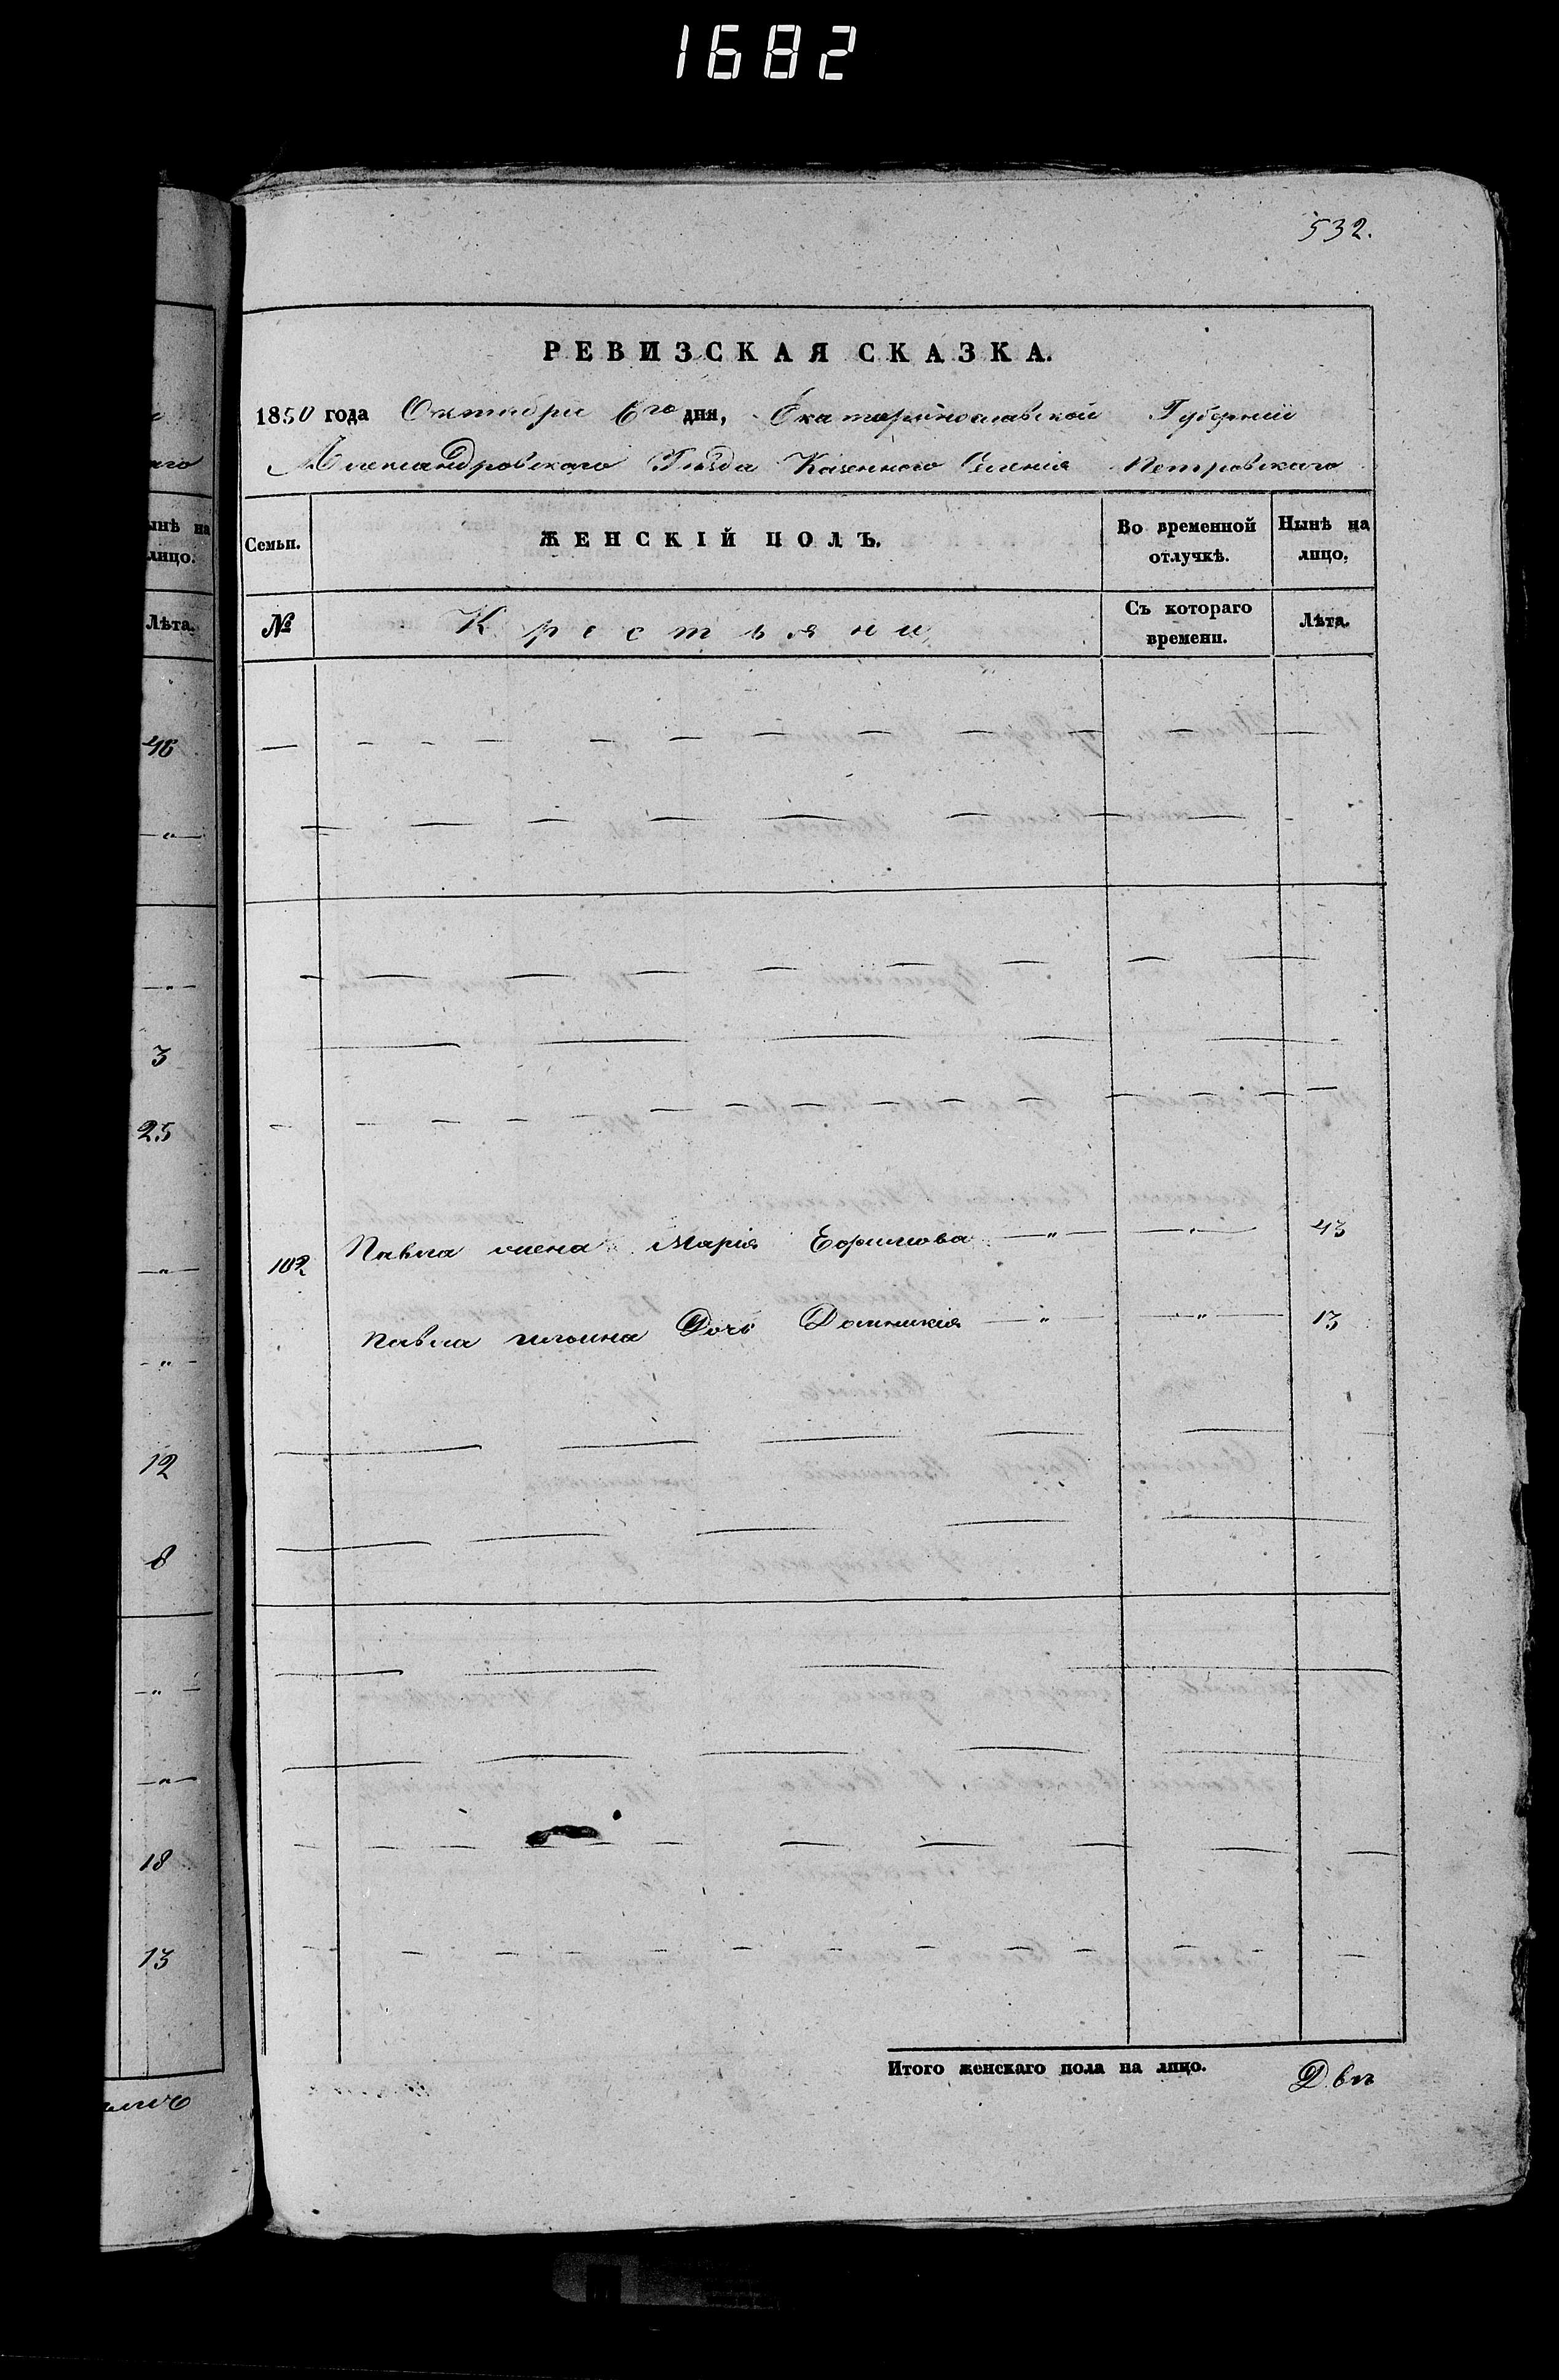 1682
532.
РЕВИЗСКАЯ СКАЗКА.
1850 года Октября 6го дня, Екатеринославской Губернии
Александровского Уѣзда Казенного Селенія Петровскаго
Семьи. ЖЕНСКІЙ ПОЛЪ. Во временной отлучкѣ. Нынѣ на лицо.
№ Крестьяни Съ котораго времени. Лѣта.
102 Павла жена Марія Ефимова — „ — — „ — 43
Павла Дочь Домникія — „ — — „ — 13
Итого женскаго пола на лицо. Двѣ
ынѣ на
лицо.
Лѣта.
46
— „ —
— „ —
3
25
— „ —
— „ —
12
8
— „ —
— „ —
18
13